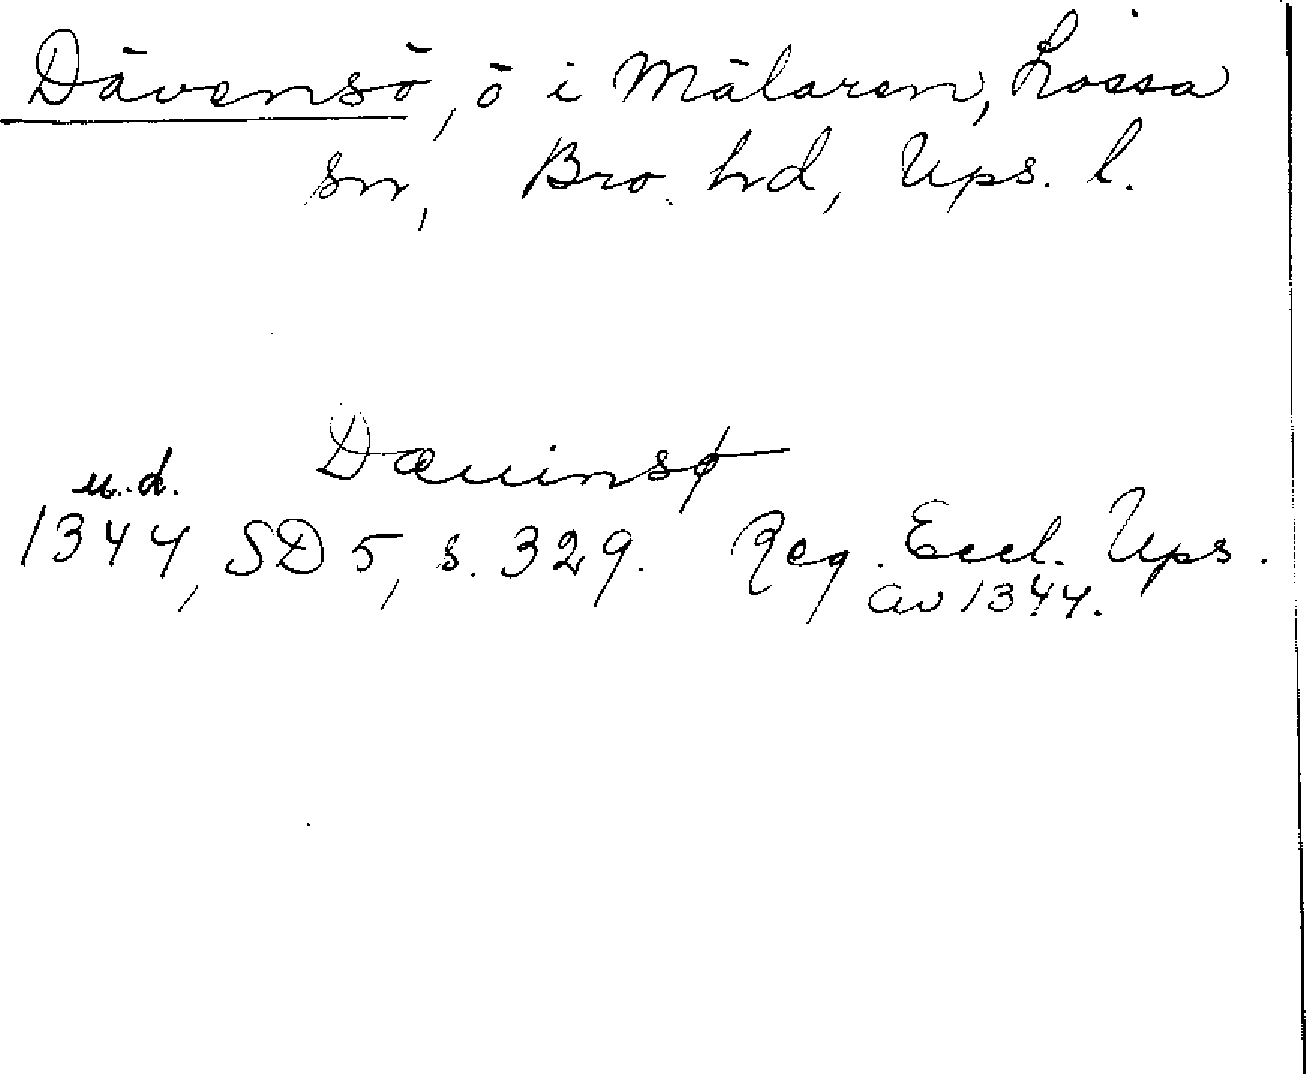 Dävensö, ö i Mälaren, Lossa
sn, Bro hd, Ups. l.
Dæuinsø
u.d.
1344, SD 5, s. 329. Reg. Eccl. Ups.
av 1344.